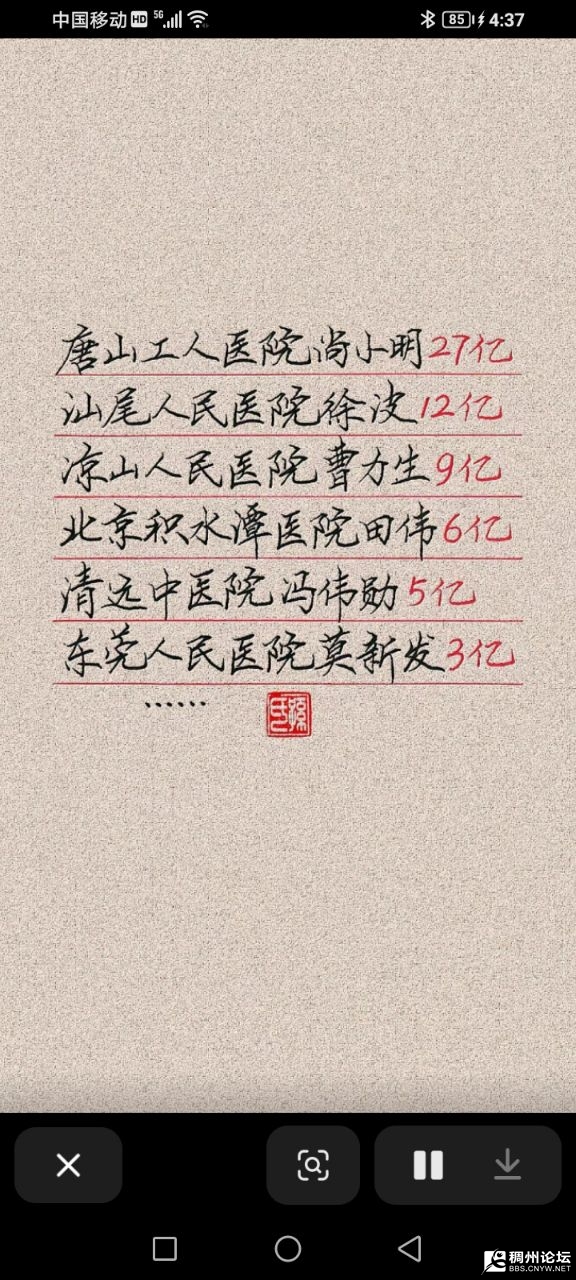 中国移动 HD 5G 85 4:37
唐山工人医院尚小明27亿
汕尾人民医院徐波12亿
凉山人民医院曹力生9亿
北京积水潭医院田伟6亿
清远中医院冯伟勋5亿
东莞人民医院莫新发3亿
……
孫氏
稠州论坛
BBS.CNYW.NET